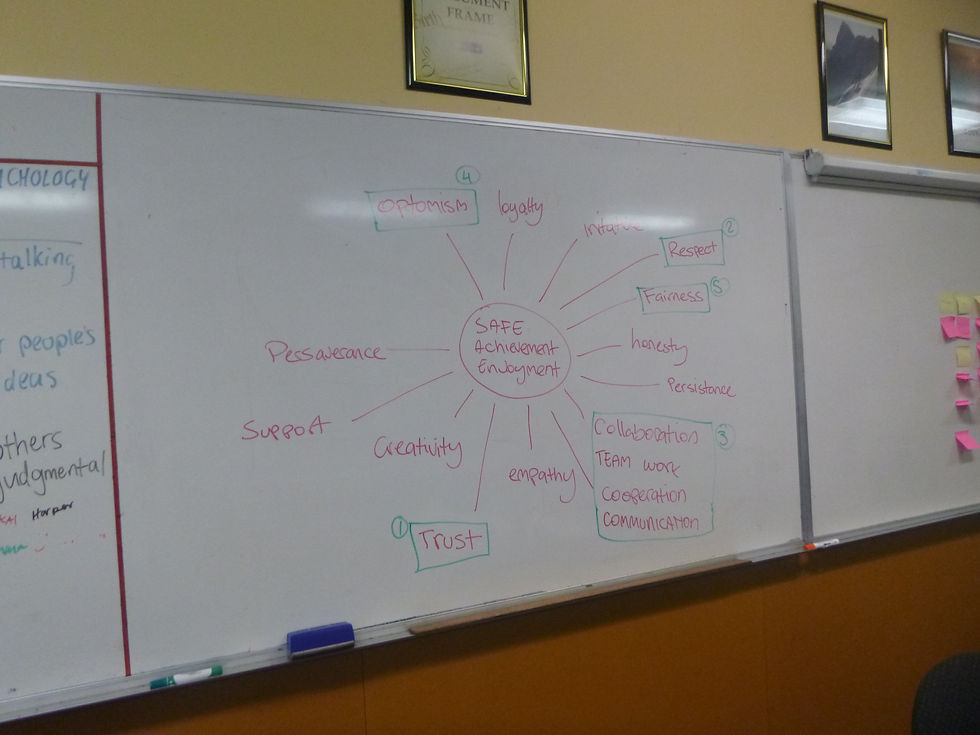 FRAME
talking
people's
others
judgmental
Harper
④
Optomism
loyalty
②
Respect
Fairness
⑤
SAFE
Achievement
Enjoyment
honesty
Persistance
Pessaverance
Support
Creativity
empathy
Collaboration
③
TEAM WORK
Cooperation
COMMUNICATION
①
Trust